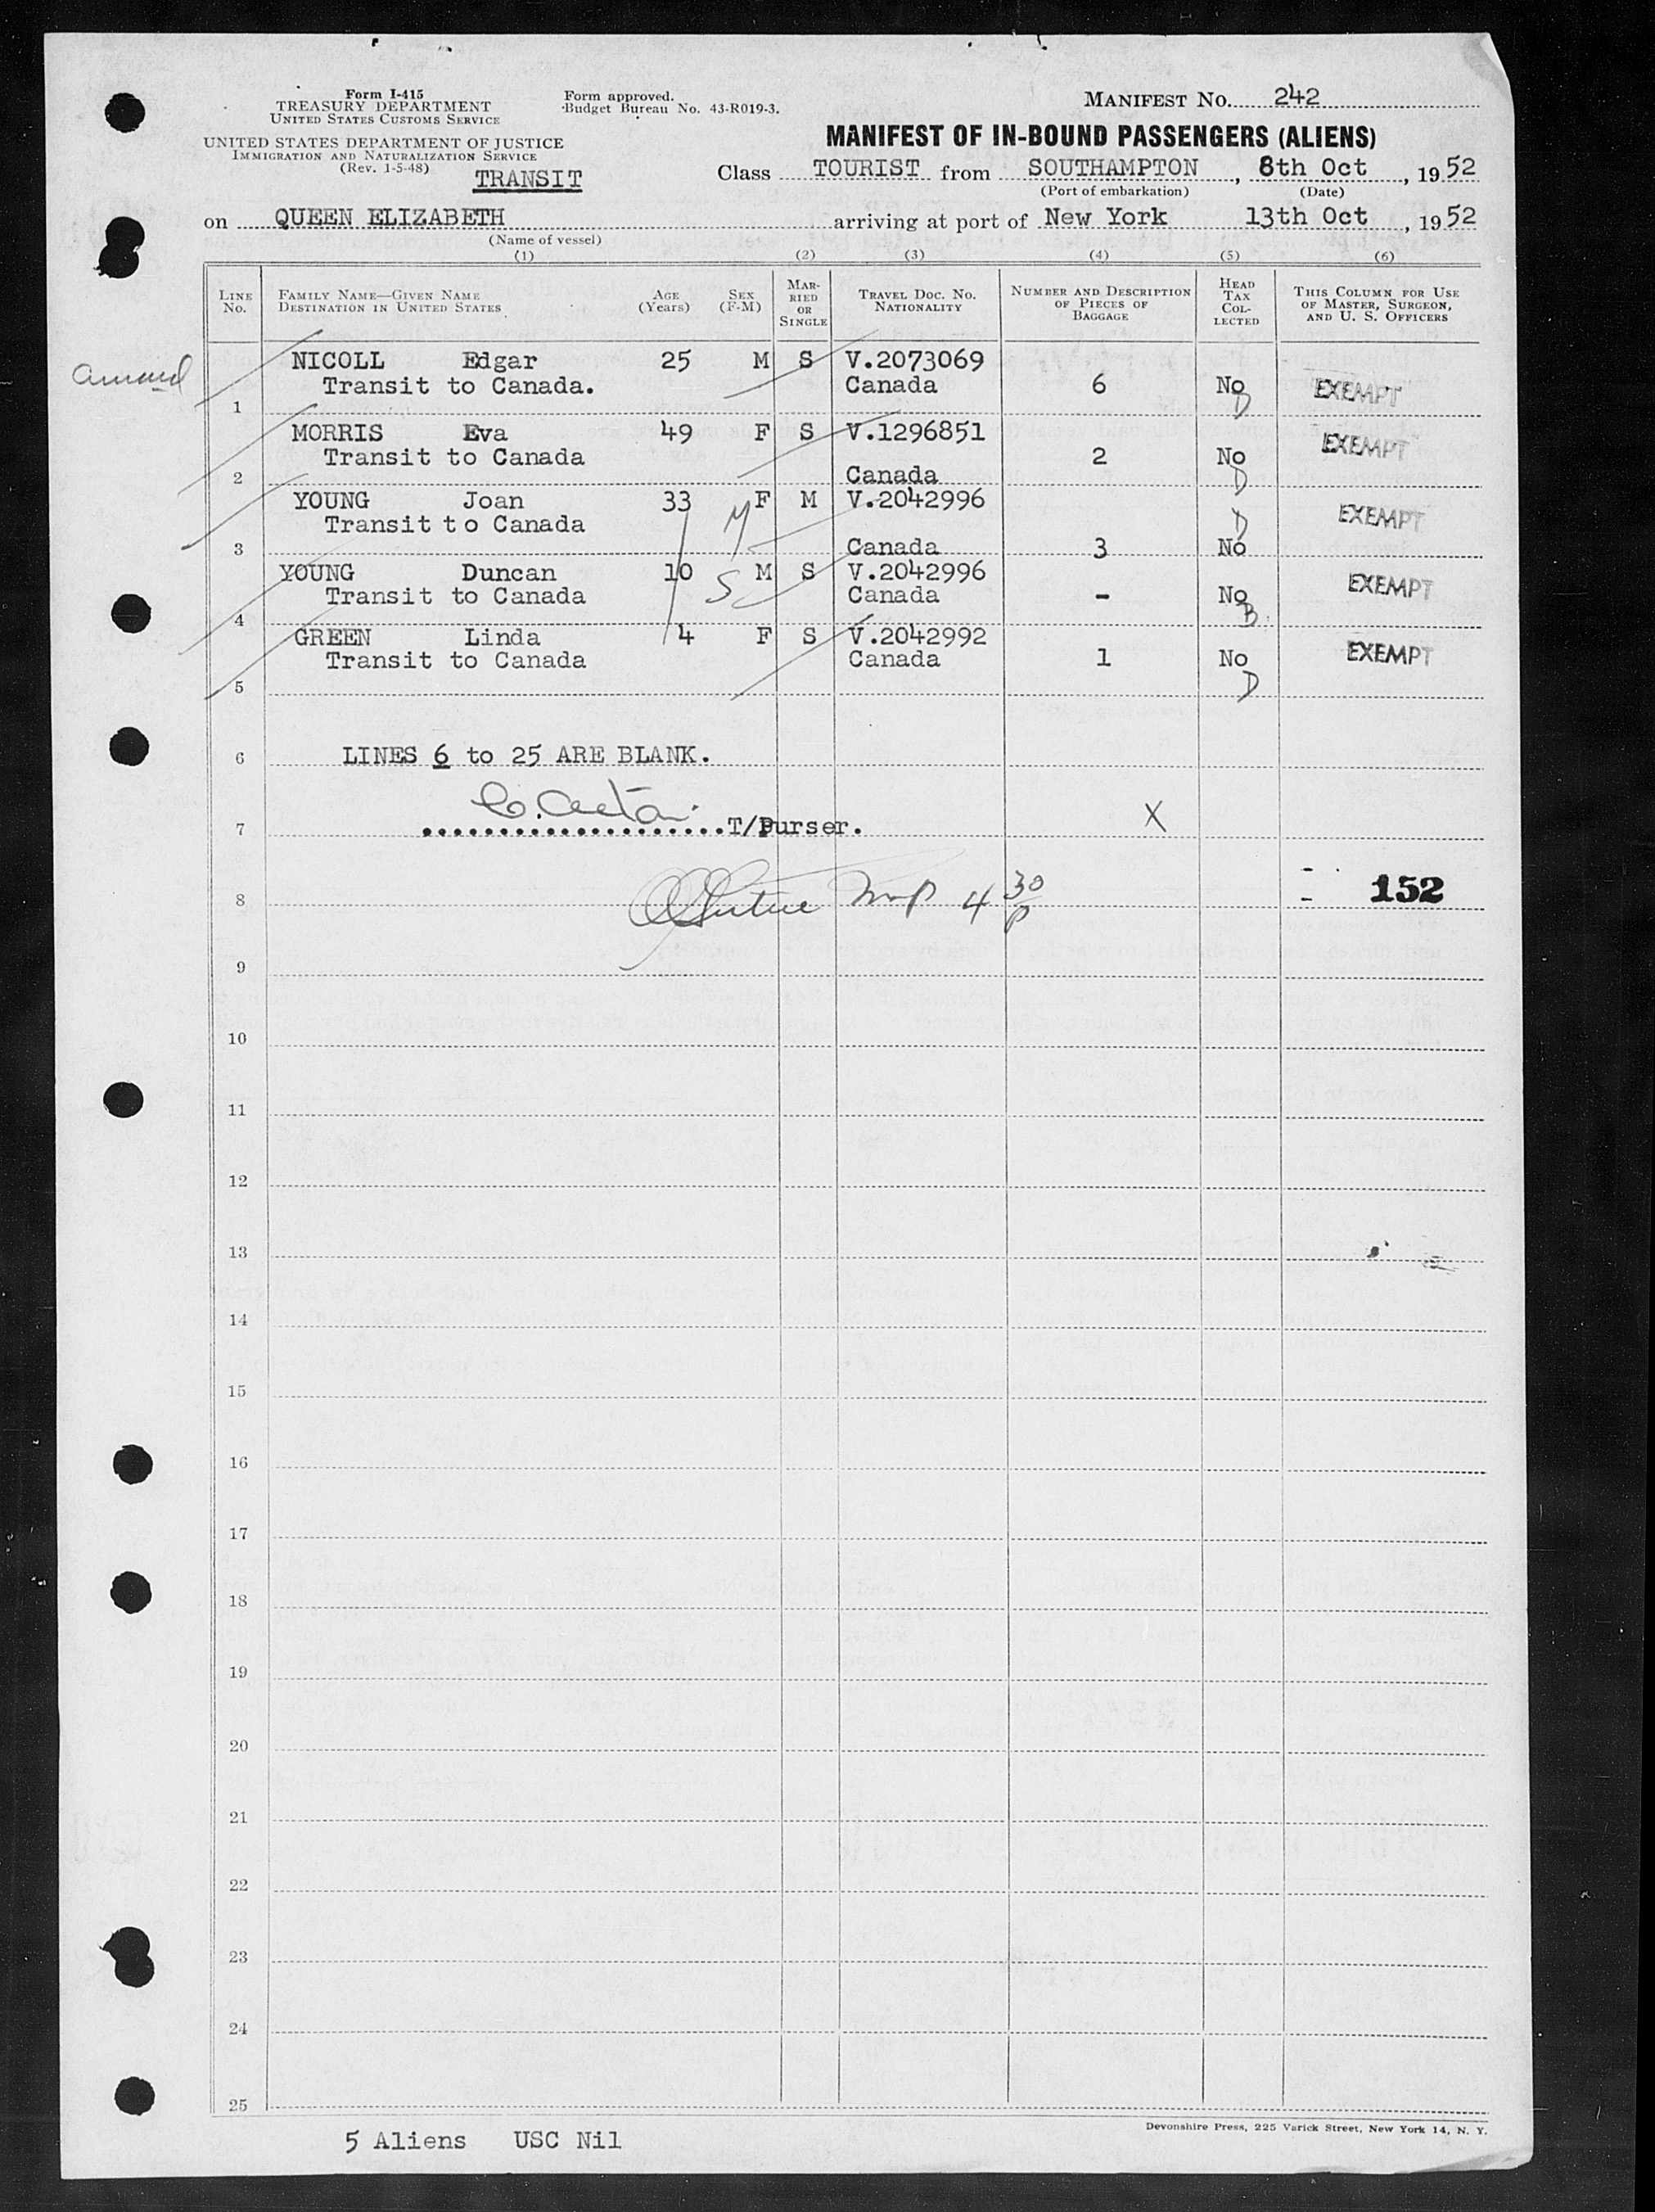 Form I-415
TREASURY DEPARTMENT
UNITED STATES CUSTOMS SERVICE
Form approved.
Budget Bureau No. 43-R019-3.
MANIFEST NO. 242
UNITED STATES DEPARTMENT OF JUSTICE
IMMIGRATION AND NATURALIZATION SERVICE
(Rev. 1-5-48)
TRANSIT
MANIFEST OF IN-BOUND PASSENGERS (ALIENS)
Class TOURIST from SOUTHAMPTON, 8th Oct, 1952
(Port of embarkation) (Date)
on QUEEN ELIZABETH arriving at port of New York 13th Oct, 1952
(Name of vessel)
(1) (2) (3) (4) (5) (6)
LINE NO. FAMILY NAME—GIVEN NAME DESTINATION IN UNITED STATES AGE (Years) SEX (F-M) MARRIED OR SINGLE TRAVEL DOC. NO. NATIONALITY NUMBER AND DESCRIPTION OF PIECES OF BAGGAGE HEAD TAX COLLECTED THIS COLUMN FOR USE OF MASTER, SURGEON, AND U. S. OFFICERS
NICOLL Edgar 25 M S V.2073069
1 Transit to Canada. Canada 6 No D EXEMPT
MORRIS Eva 49 F S V.1296851
2 Transit to Canada Canada 2 No D EXEMPT
YOUNG Joan 33 F M V.2042996
3 Transit to Canada M Canada 3 No D EXEMPT
YOUNG Duncan 10 M S V.2042996
4 Transit to Canada S Canada - No B EXEMPT
GREEN Linda 4 F S V.2042992
5 Transit to Canada Canada 1 No D EXEMPT
6 LINES 6 to 25 ARE BLANK.
7 T/Purser. X
8 4 30/p 152
9
10
11
12
13
14
15
16
17
18
19
20
21
22
23
24
25
Devonshire Press, 225 Varick Street, New York 14, N. Y.
5 Aliens USC Nil